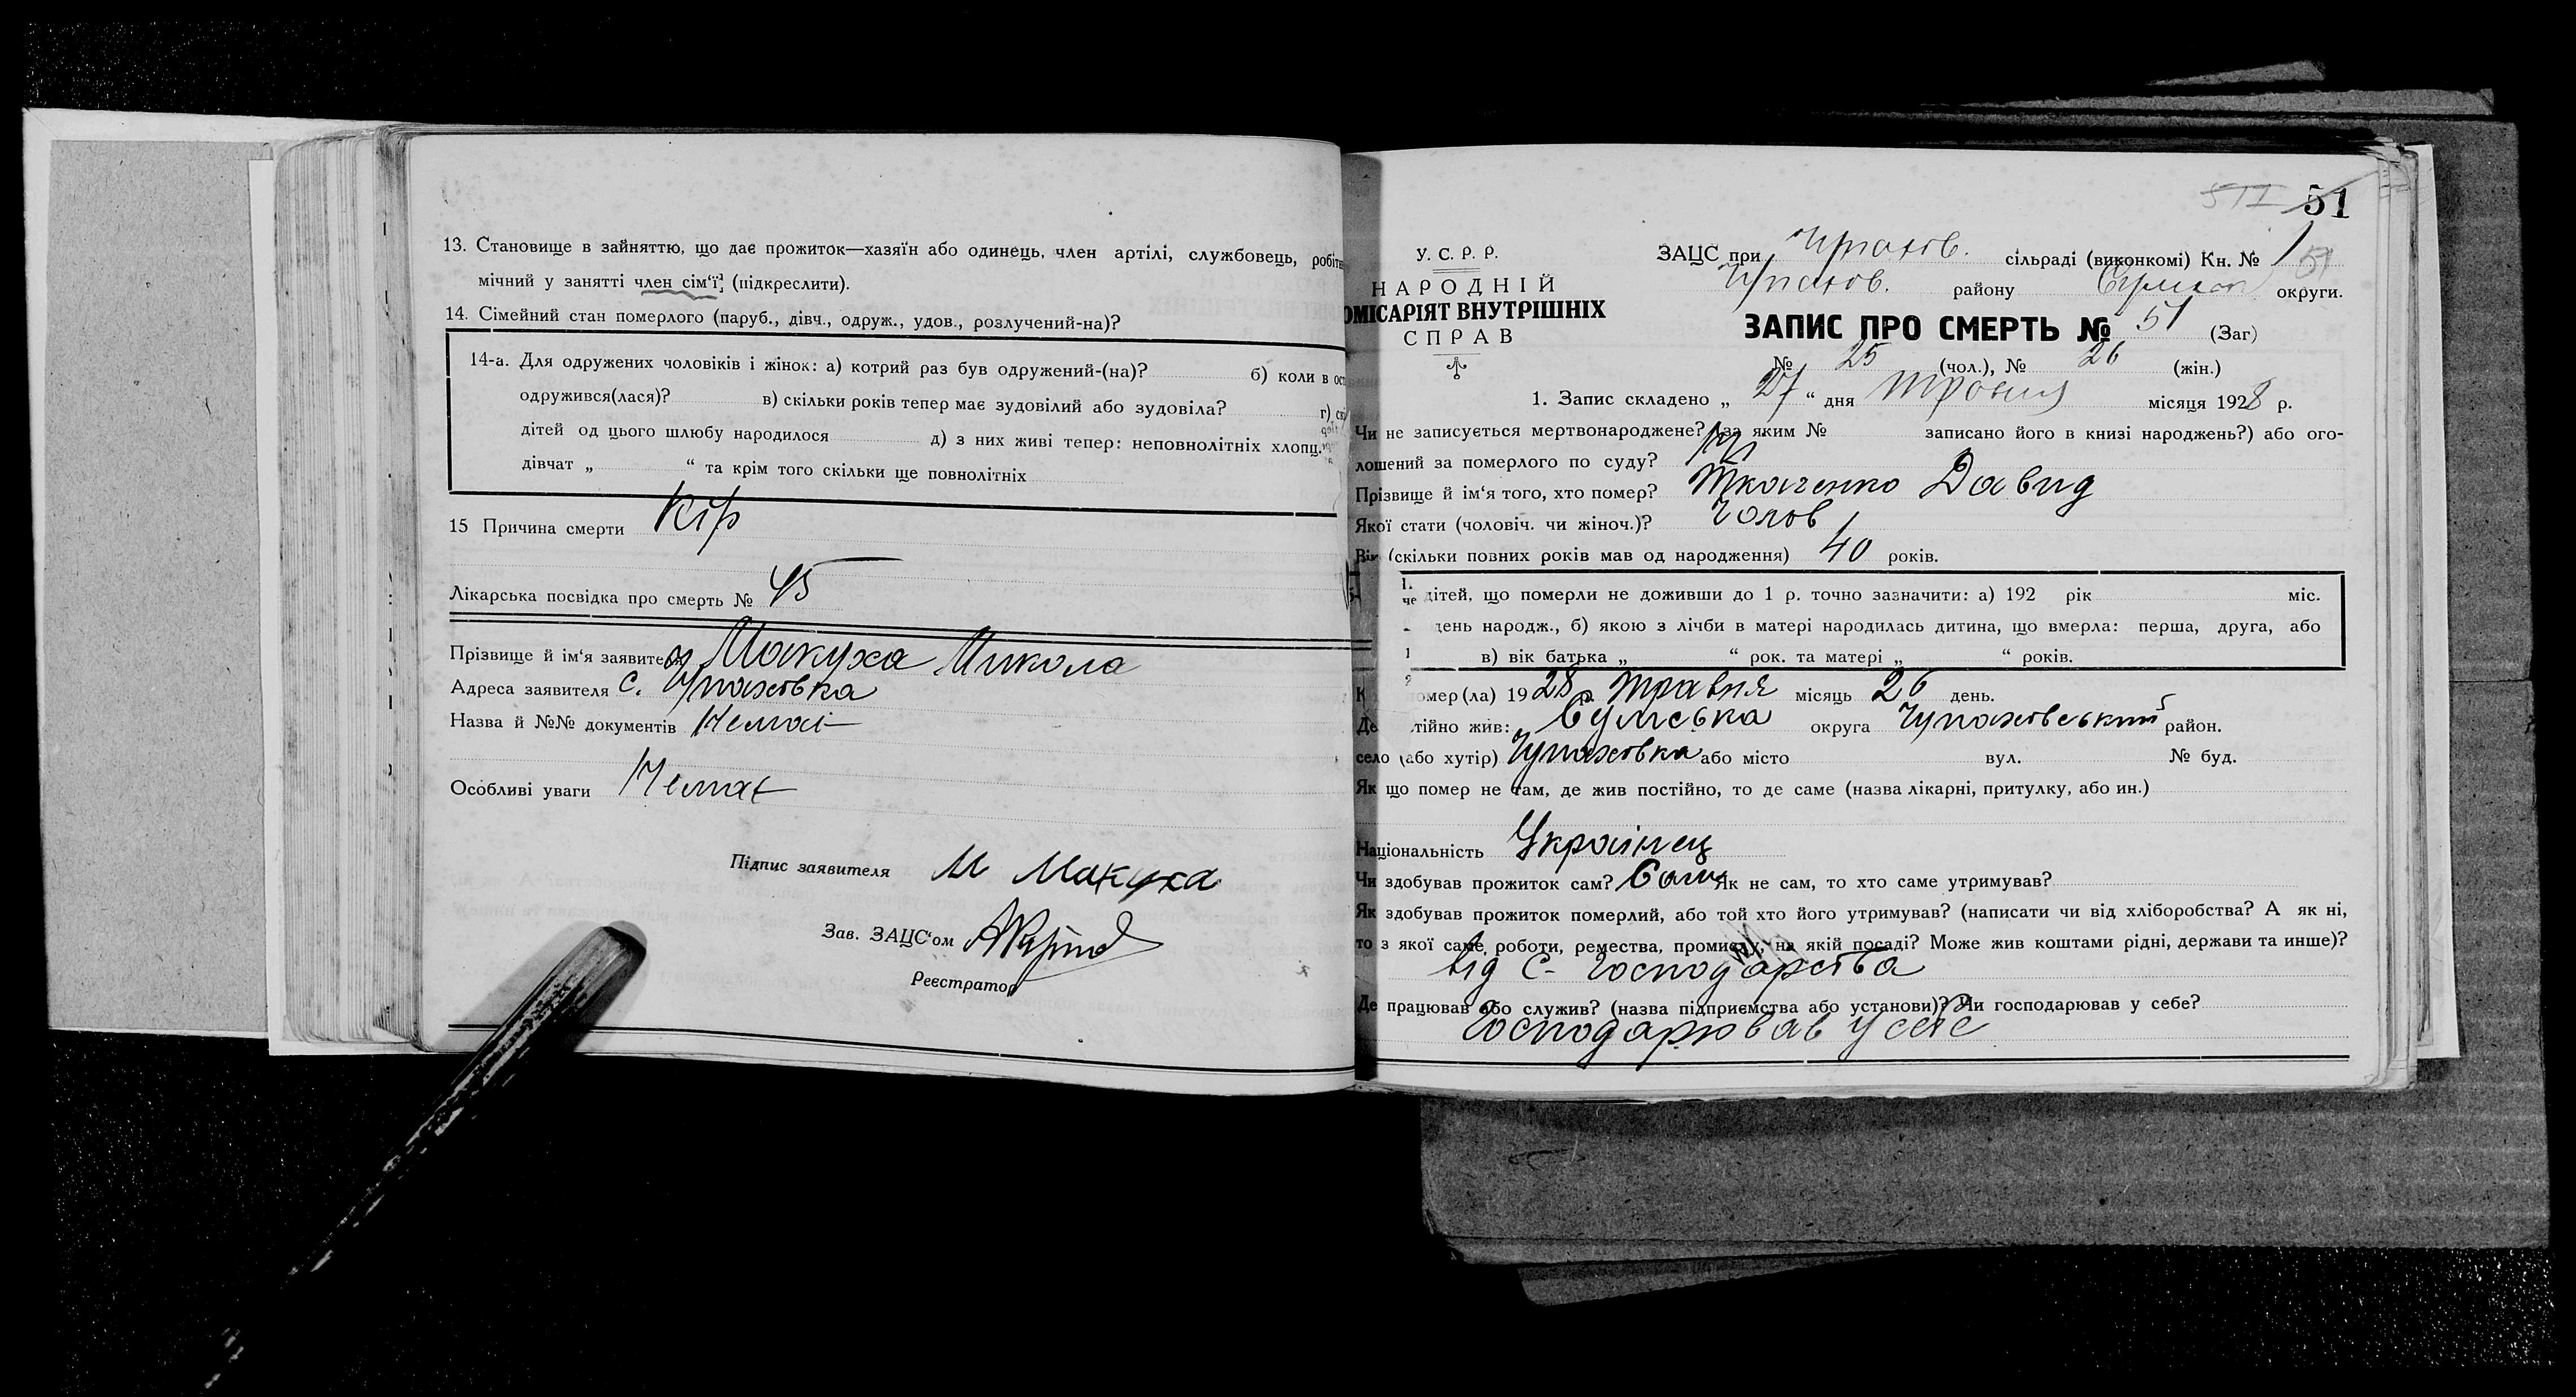 13. Становище в зайняттю, що дає прожиток—хазяїн або одинець, член артілі, службовець,
мічний у занятті член сім‘ї (підкреслити).
14. Сімейний стан померлого (паруб., дівч., одруж., удов., розлучений-на)?
14-а. Для одружених чоловіків і жінок: а) котрий раз був одружений-(на)? б) коли в
одружився(лася)? в) скільки років тепер має зудовілий або зудовіла? г)
дітей од цього шлюбу народилося д) з них живі тепер: неповнолітніх хлопц.
дівчат „ “ та крім того скільки ще повнолітніх
15 Причина смерти Кір
Лікарська посвідка про смерть № 45
Прізвище й ім‘я заявителя Макуха Микола
Адреса заявителя с. Чупахівка
Назва й №№ документів Немає
Особливі уваги Немає
Підпис заявителя М Макуха
Зав. ЗАЦС‘ом
Реєстратор
51
У. С. Р. Р.
НАРОДНІЙ
ОМІСАРІЯТ ВНУТРІШНІХ
СПРАВ
ЗАЦС при Чупахів. сільраді (виконкомі) Кн. № 1
Чупахів. району Сумськ округи.
ЗАПИС ПРО СМЕРТЬ № 51 (Заг)
№ 25 (чол.), № 26 (жін.)
1. Запис складено „ 27 “ дня Травня місяця 1928 р.
Чи не записується мертвонароджене? (за яким № записано його в книзі народжень?) або ого-
лошений за померлого по суду? Ні
Прізвище й ім‘я того, хто помер? Ткаченко Давид
Якої стати (чоловіч. чи жіноч.)? Чолов
Вік (скільки повних років мав од народження) 40 років.
дітей, що померли не доживши до 1 р. точно зазначити: а) 192 рік міс.
день народж., б) якою з лічби в матері народилась дитина, що вмерла: перша, друга, або
в) вік батька „ “ рок. та матері „ “ років.
К омер(ла) 1928 р. Травня місяць 26 день.
Де тійно жив: Сумська округа Чупахівський район.
село (або хутір) Чупахівка або місто вул. № буд.
Як що помер не там, де жив постійно, то де саме (назва лікарні, притулку, або ин.)
Національність Українец
Чи здобував прожиток сам? Сам Як не сам, то хто саме утримував?
Як здобував прожиток померлий, або той хто його утримував? (написати чи від хліборобства? А як ні,
то з якої саме роботи, ремества, промислу, на якій посаді? Може жив коштами рідні, держави та инше)?
від с- господарства
Де працював або служив? (назва підприємства або установи)? Чи господарював у себе?
Господарював у себе